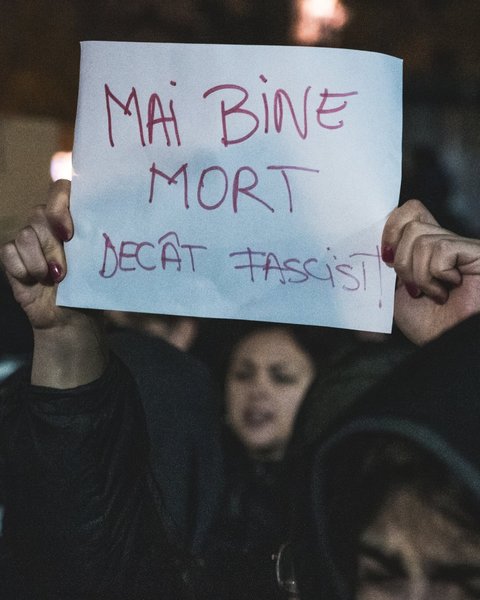 MAi BiNE
MORT
DECÂT FASCiST!